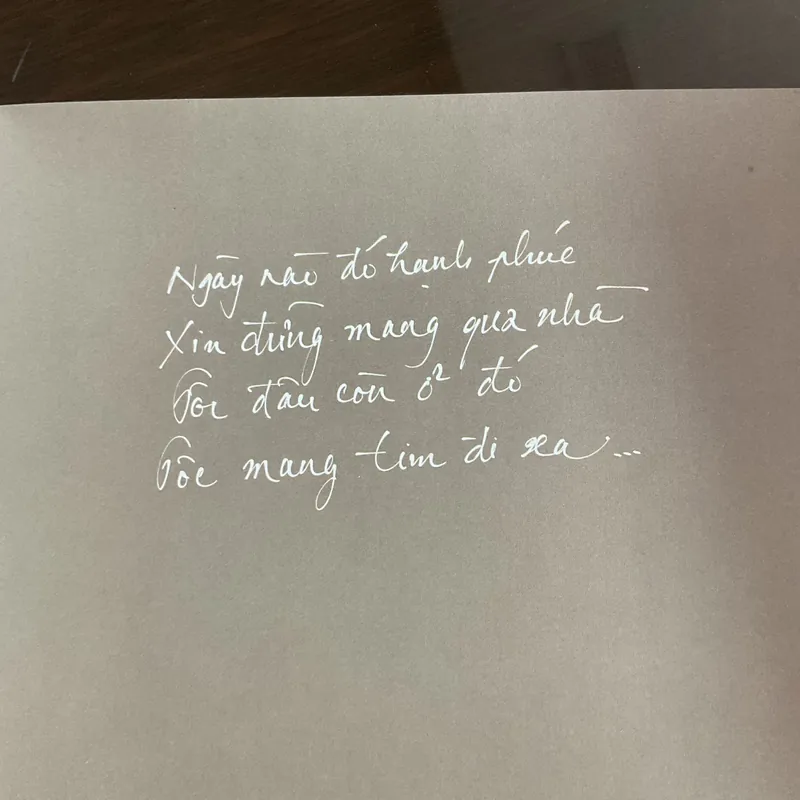 Ngày nào đó hạnh phúc
Xin đừng mang qua nhà
Tôi đâu còn ở đó
Tôi mang tim đi xa...